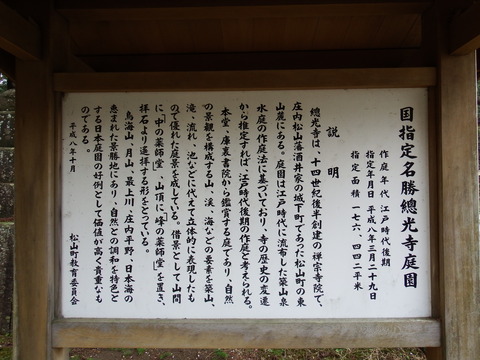 国指定名勝總光寺庭園
作庭年代 江戸時代後期
指定年月日 平成八年三月二十九日
指定面積 一七六、四四二平米
説明
總光寺は、十四世紀後半創建の禅宗寺院で、
庄内松山藩酒井家の城下町であった松山町の東
山麓にある。庭園は江戸時代に流布した築山泉
水庭の作庭法に基づいており、寺の歴史の変遷
から推定すれば、江戸時代後期の作庭と考えられる。
本堂、庫裏書院から鑑賞する庭であり、自然
の景観を構成する山、渓、海などの要素を築山、
滝、流れ、池などに代えて立体的に表現したも
ので優れた庭景を成している。借景として山間
に「中の薬師堂」、山頂に「峰の薬師堂」を置き、
拝石より遥拝する形をとっている。
鳥海山、月山、最上川、庄内平野、日本海の
恵まれた景勝地にあり、自然との調和を特色と
する日本庭園の好例として価値が高く貴重なも
のである。
平成八年十月
松山町教育委員会